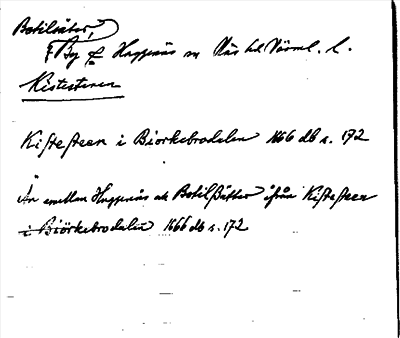 Botilsäter,
By Huggenäs sn Näs hd Värml. l.
Kistesteen
Kistesteen i Biorkebrodalen 1666 db s. 172
Än emellan Huggenäs ok Botilssätter ifrån Kistesteen
i Biörkebrodalen 1666 db s. 172